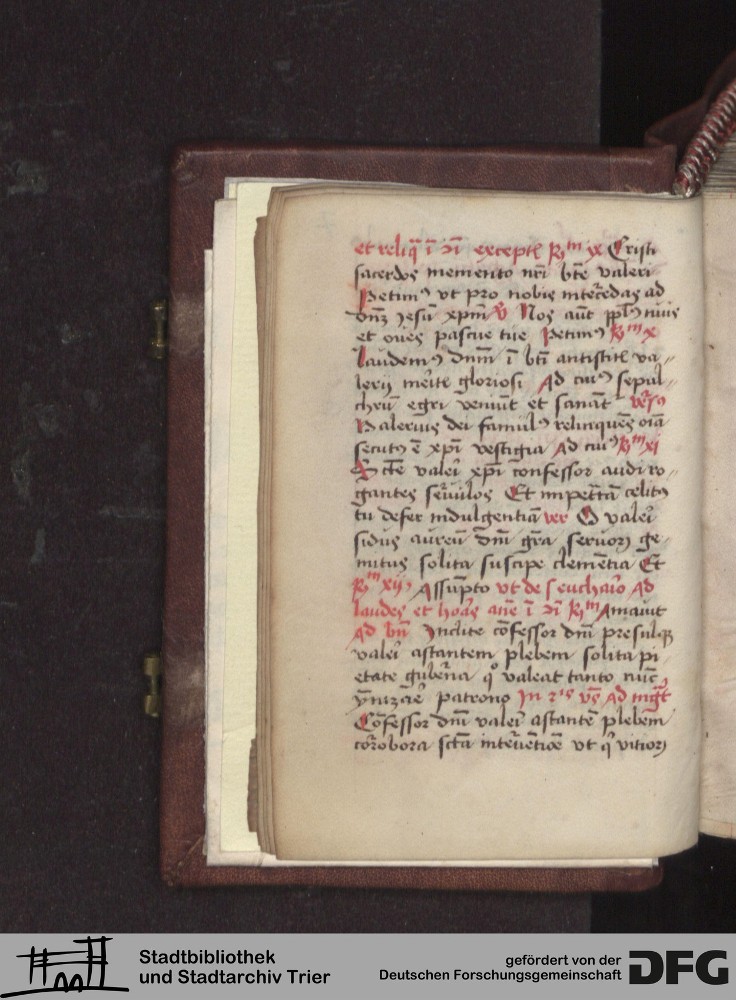 et reliq̄ ī ꝯī exceptꝭ ℞m ix Cristi
sacerdos memento nr̄i bt̄e valeri
Petimꝰ vt pro nobis intercedas ad
dn̄m Jesū xp̄m ꝟ Nos aūt ppl̄s tuus
et oues pascue tue Petimꝰ ℞m x
laudemꝰ dn̄m ī bt̄i antistitꝭ va〃
lerij meītꝭ gloriosi Ad cuiꝰ sepul〃
chrū egri veniūt et sanāt̄ versꝰ
Valerius dei famulꝰ relinquēs oīa
secutꝰ ē xp̄i vestigia Ad cuiꝰ ℞m xi
Sct̄e valeī xp̄i confessor audi ro〃
gantes seruulos Et impet̄tā celitꝰ
tu defer indulgentiā ver O valeī
sidus aureū dn̄i gr̄a seruoꝝ ge〃
mitus solita suscipe clemētia Et
℞m xij Assūpto vt de s euchaīo Ad
laudes et hoās ān̄e ī ꝯī ℞m Amauit
Ad bn̄ Jnclite cōfessor dn̄i presulqꝫ
valeī astantem plebem solita pi〃
etate gub̄na qͦ valeat tanto nūc
patrono Jn 2is vs̄ Ad mgt̄
Cōfessor dn̄i valeī astantē plebem
coīrobora sctā int̄uētiōe vt q̄ vitioꝝ
Stadtbibliothek
und Stadtarchiv Trier
gefördert von der
Deutschen Forschungsgemeinschaft
DFG